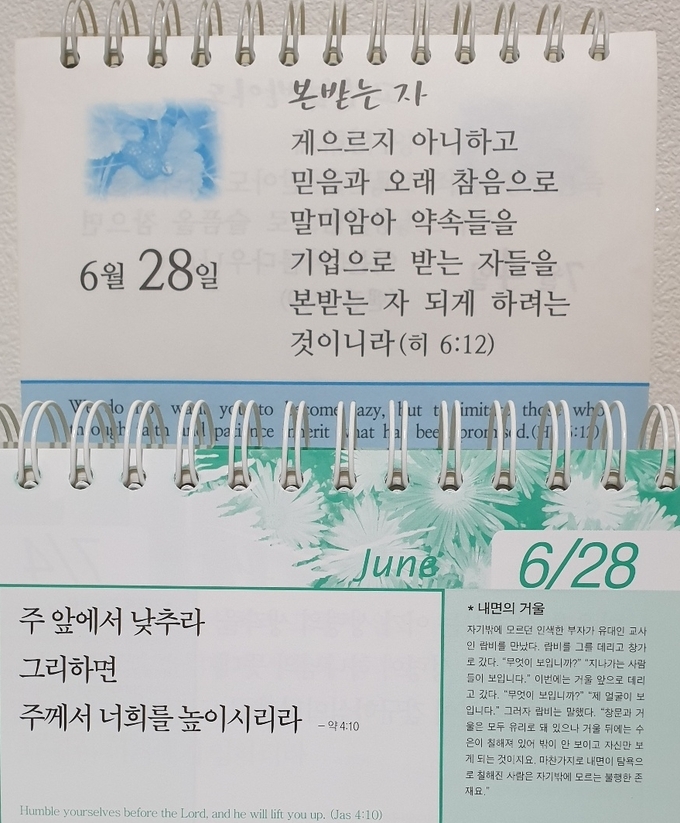 본받는 자
게으르지 아니하고
믿음과 오래 참음으로
말미암아 약속들을
기업으로 받는 자들을
본받는 자 되게 하려는
것이니라(히 6:12)
6월 28일
We do not want you to become lazy, but to imitate those who
through faith and patience inherit what has been promised.
June 6/28
주 앞에서 낮추라
그리하면
주께서 너희를 높이시리라 – 약 4:10
Humble yourselves before the Lord, and he will lift you up. (Jas 4:10)
* 내면의 거울
자기밖에 모르던 인색한 부자가 유대인 교사
인 랍비를 만났다. 랍비를 그를 데리고 창가
로 갔다. "무엇이 보입니까?" "지나가는 사람
들이 보입니다." 이번에는 거울 앞으로 데리
고 갔다. "무엇이 보입니까?" "제 얼굴이 보
입니다." 그러자 랍비는 말했다. "창문과 거
울은 모두 유리로 돼 있으나 거울 뒤에는 수
은이 칠해져 있어 밖이 안 보이고 자신만 보
게 되는 것이지요. 마찬가지로 내면이 탐욕으
로 칠해진 사람은 자기밖에 모르는 불행한 존
재요."